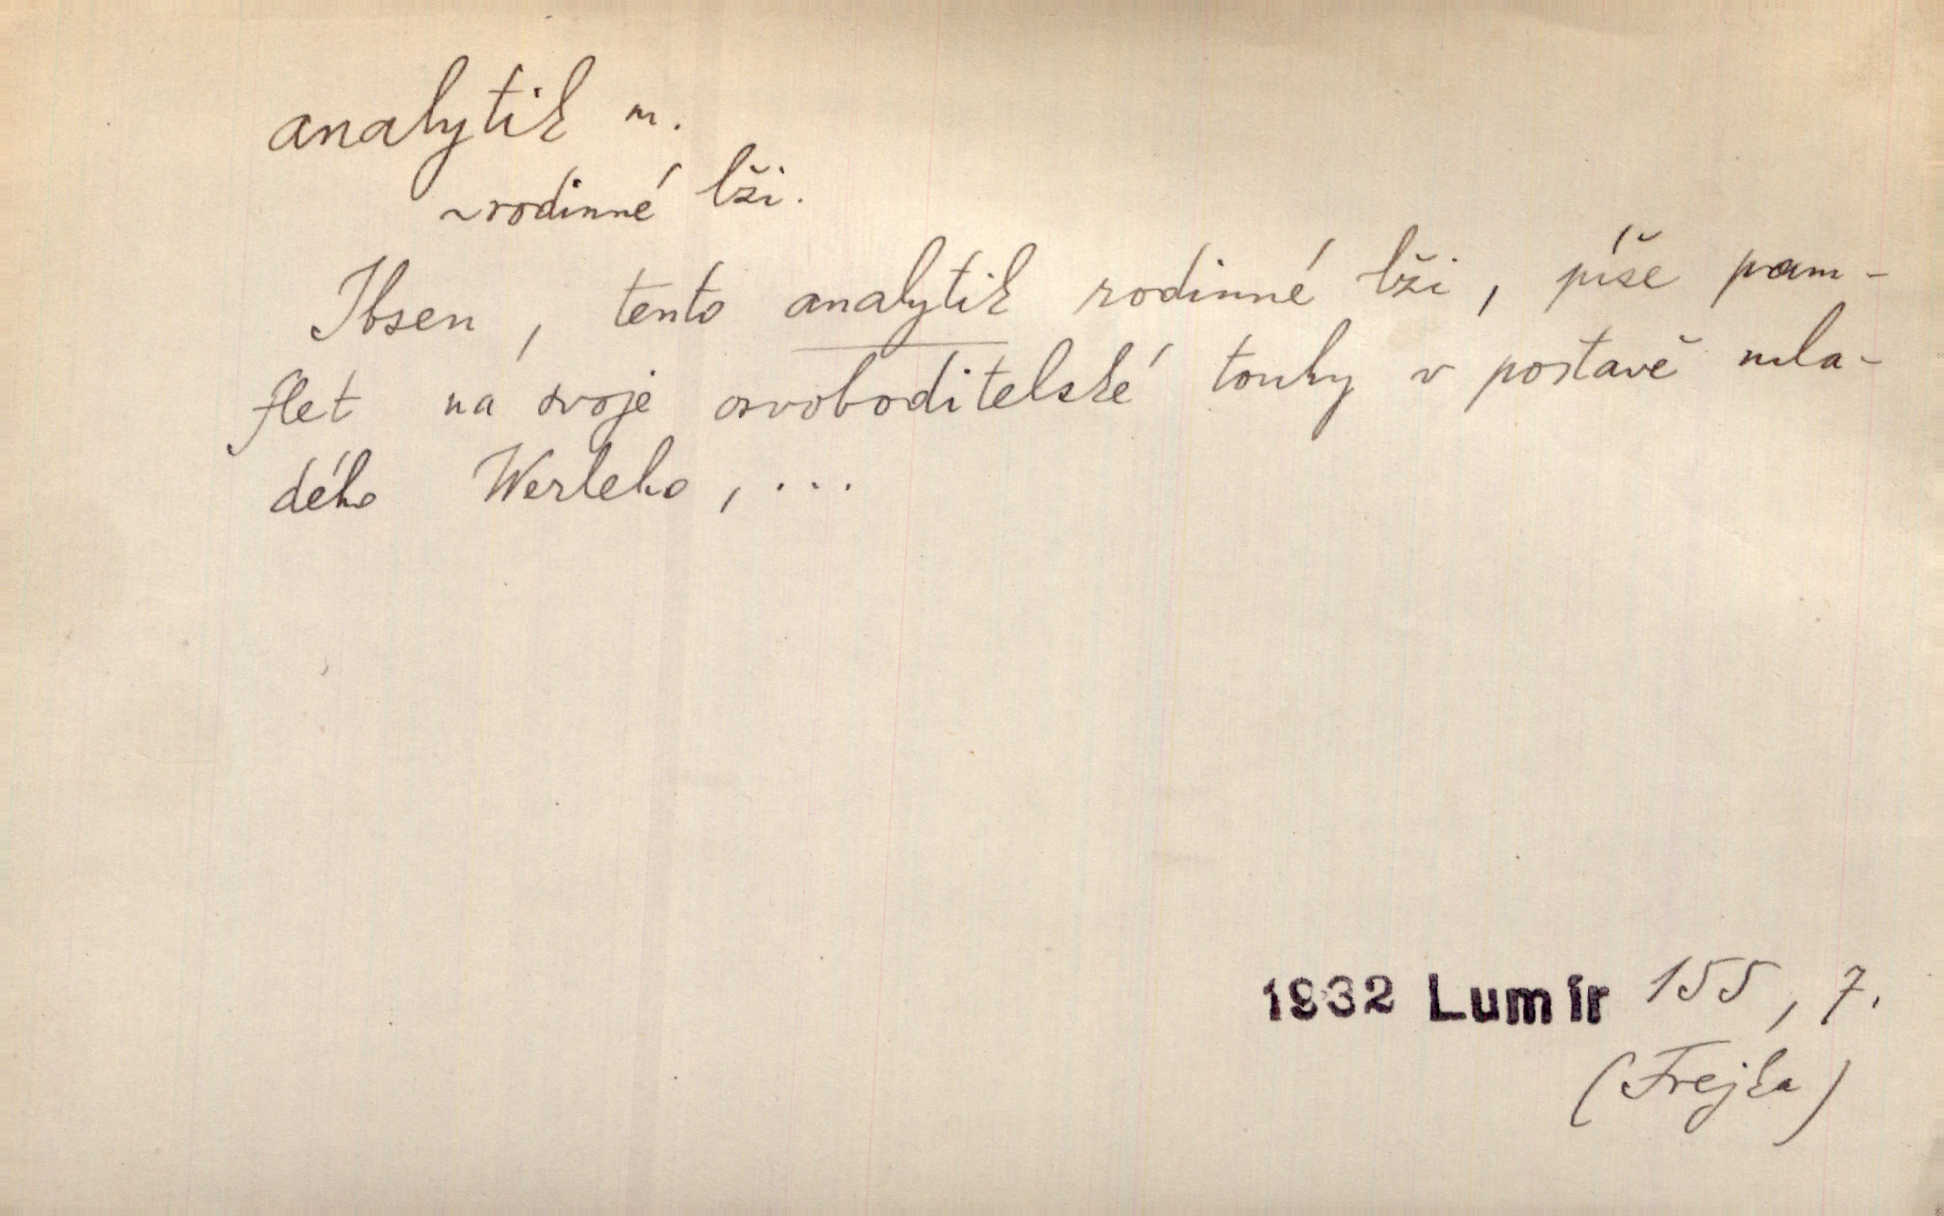 analytik m.
~rodinné lži.
Ibsen, tento analytik rodinné lži, píše pam-
flet na svoje osvoboditelské touhy v postavě mla-
dého Werleho, ...
1932 Lumír 155, 7.
(Frejka)